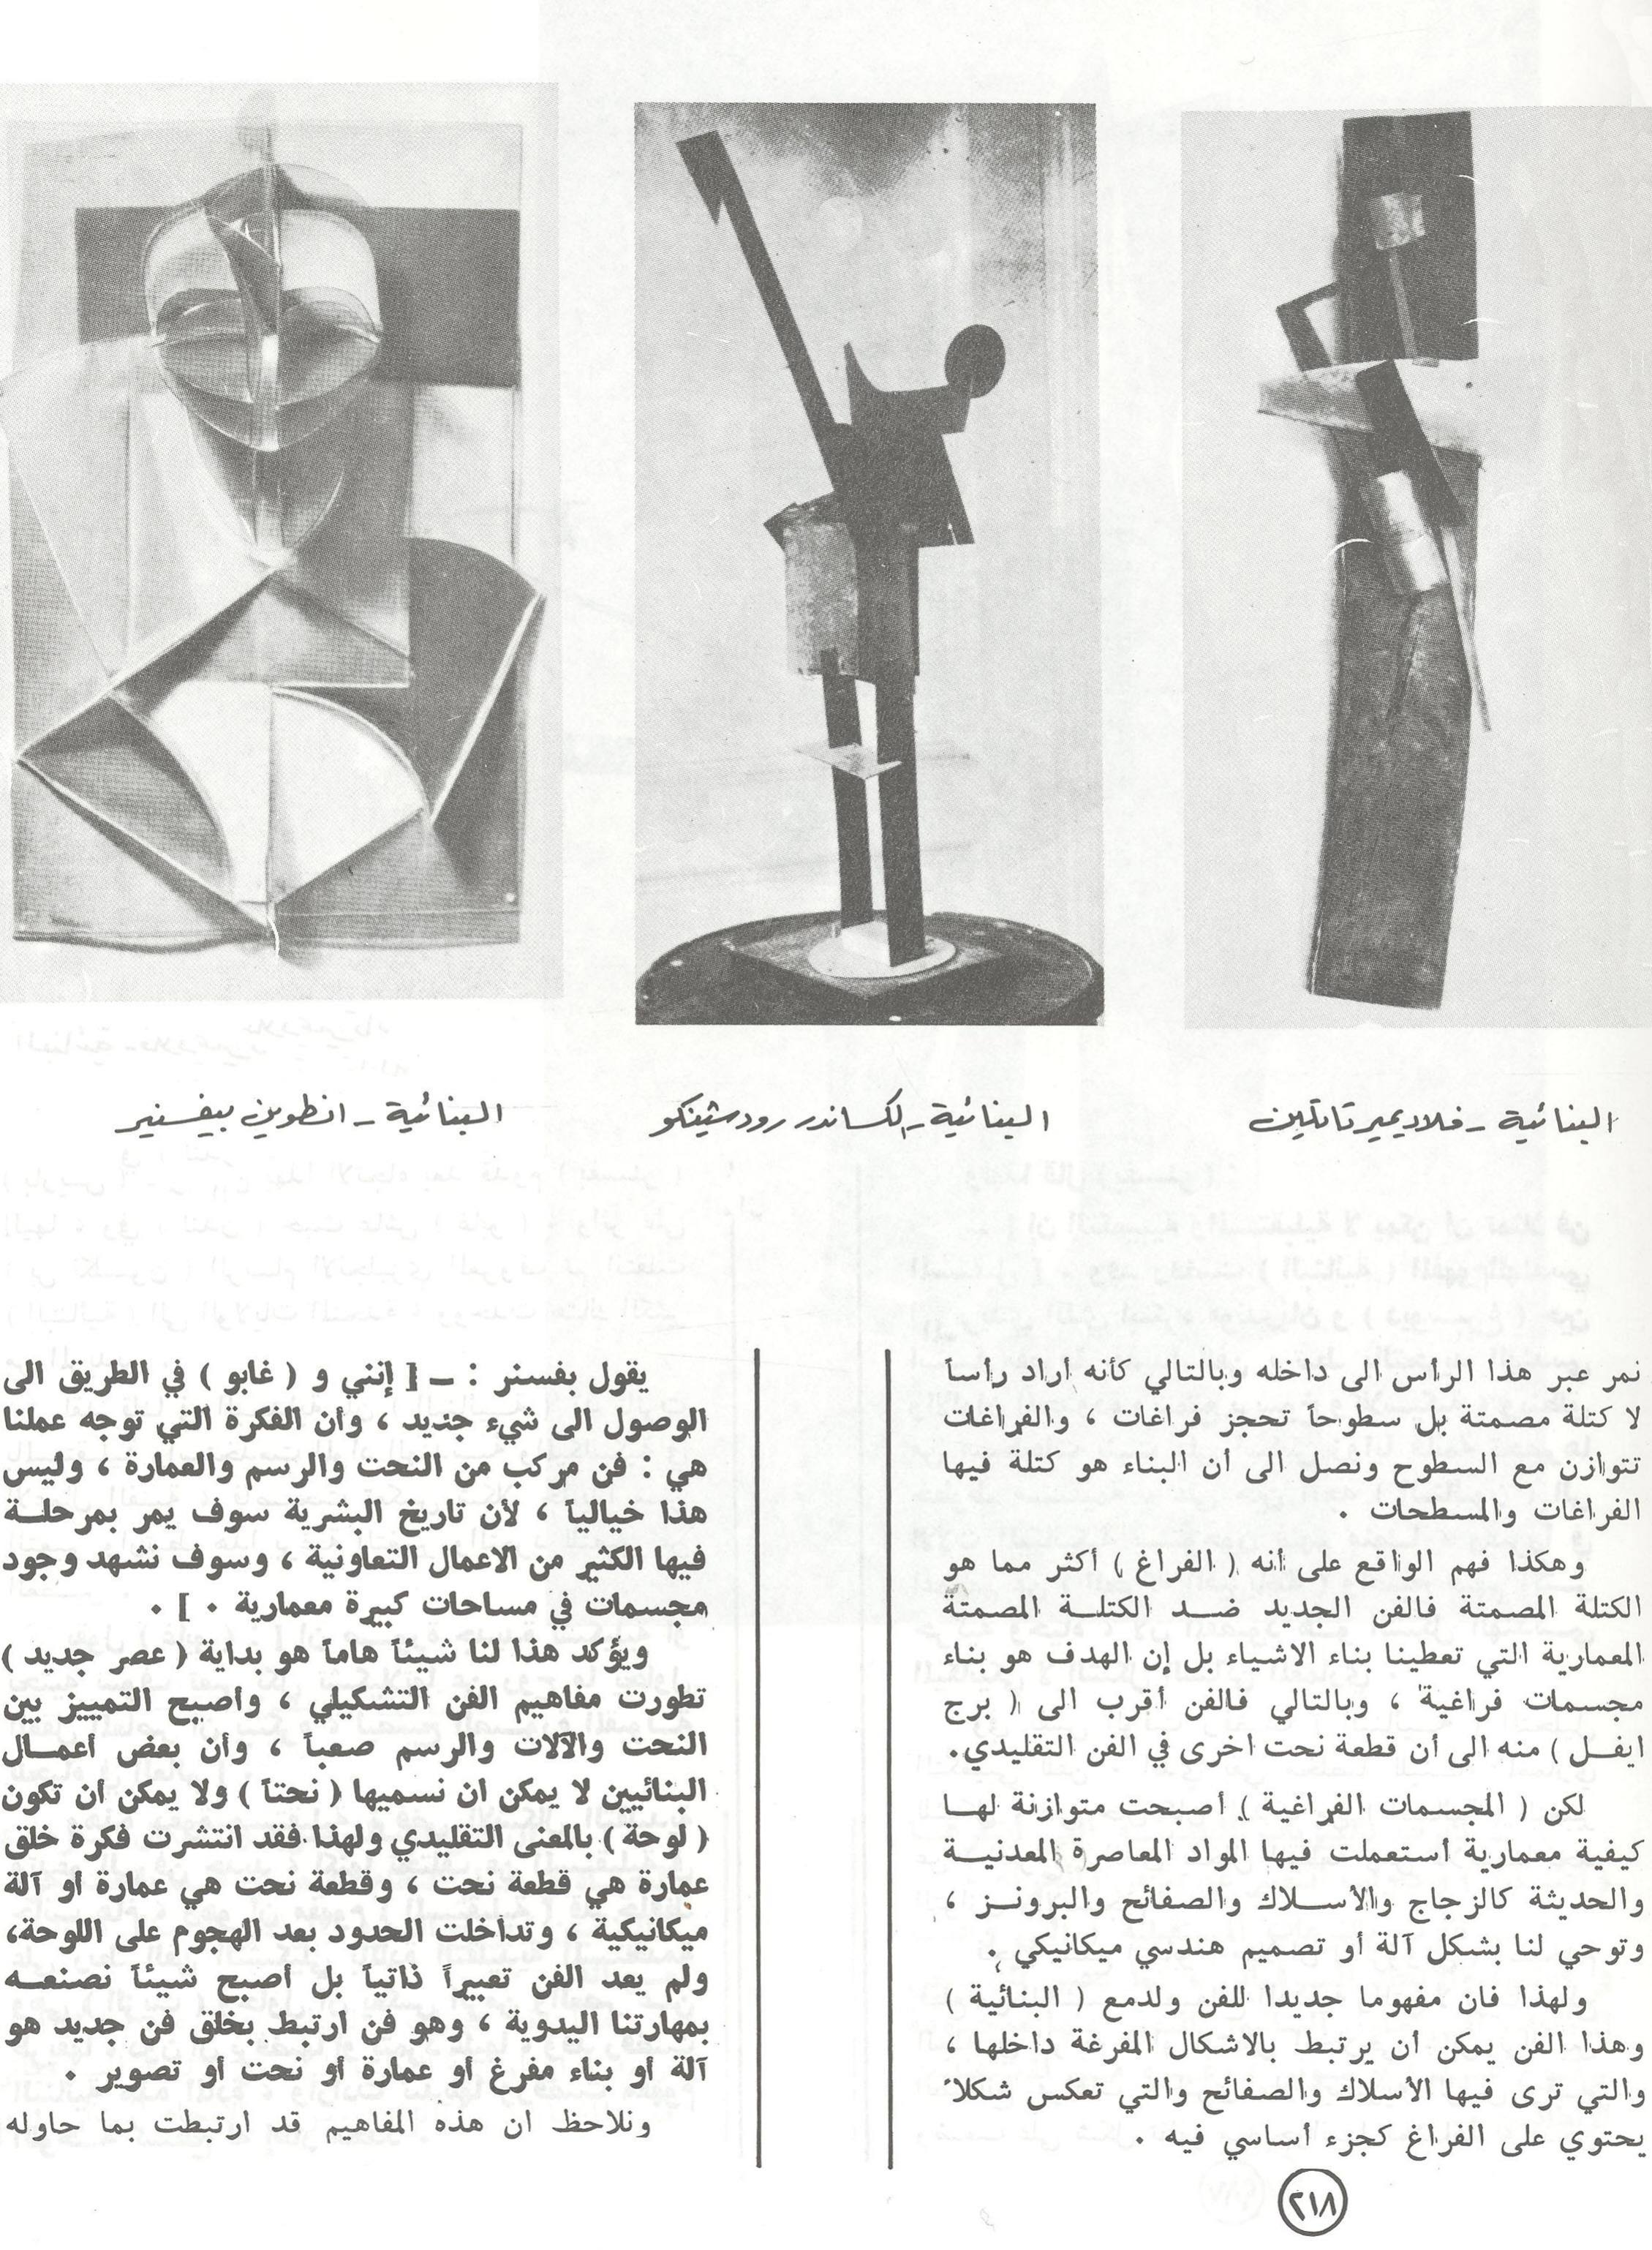 البنائية - فلاديمير تاتلين
البنائية - الكساندر رودشينكو
البنائية - انطوين بيفسنير
نمر عبر هذا الرأس الى داخله وبالتالي كأنه أراد رأساً
لا كتلة مصمتة بل سطوحاً تحجز فراغات ، والفراغات
تتوازن مع السطوح ونصل الى أن البناء هو كتلة فيها
الفراغات والمسطحات .
وهكذا فهم الواقع على أنه ( الفراغ ) أكثر مما هو
الكتلة المصمتة فالفن الجديد ضد الكتلة المصمتة
المعمارية التي تعطينا بناء الاشياء بل إن الهدف هو بناء
مجسمات فراغية ، وبالتالي فالفن أقرب الى ( برج
ايفل ) منه الى أن قطعة نحت اخرى في الفن التقليدي.
لكن ( المجسمات الفراغية ) أصبحت متوازنة لها
كيفية معمارية أستعملت فيها المواد المعاصرة المعدنية
والحديثة كالزجاج والأسلاك والصفائح والبرونز ،
وتوحي لنا بشكل آلة أو تصميم هندسي ميكانيكي .
ولهذا فان مفهوما جديدا للفن ولدمع ( البنائية )
وهذا الفن يمكن أن يرتبط بالاشكال المفرغة داخلها ،
والتي ترى فيها الأسلاك والصفائح والتي تعكس شكلاً
يحتوي على الفراغ كجزء أساسي فيه .
يقول بفسنر : ــ [ إنني و ( غابو ) في الطريق الى
الوصول الى شيء جديد ، وأن الفكرة التي توجه عملنا
هي : فن مركب من النحت والرسم والعمارة ، وليس
هذا خيالياً ، لأن تاريخ البشرية سوف يمر بمرحلة
فيها الكثير من الاعمال التعاونية ، وسوف نشهد وجود
مجسمات في مساحات كبيرة معمارية . ] .
ويؤكد هذا لنا شيئاً هاماً هو بداية ( عصر جديد )
تطورت مفاهيم الفن التشكيلي ، واصبح التمييز بين
النحت والآلات والرسم صعباً ، وأن بعض أعمال
البنائيين لا يمكن ان نسميها ( نحتاً ) ولا يمكن أن تكون
( لوحة ) بالمعنى التقليدي ولهذا فقد انتشرت فكرة خلق
عمارة هي قطعة نحت ، وقطعة نحت هي عمارة أو آلة
ميكانيكية ، وتداخلت الحدود بعد الهجوم على اللوحة،
ولم يعد الفن تعبيراً ذاتياً بل أصبح شيئاً نصنعه
بمهارتنا اليدوية ، وهو فن ارتبط بخلق فن جديد هو
آلة أو بناء مفرغ أو عمارة أو نحت أو تصوير .
ونلاحظ ان هذه المفاهيم قد ارتبطت بما حاوله
٢١٨